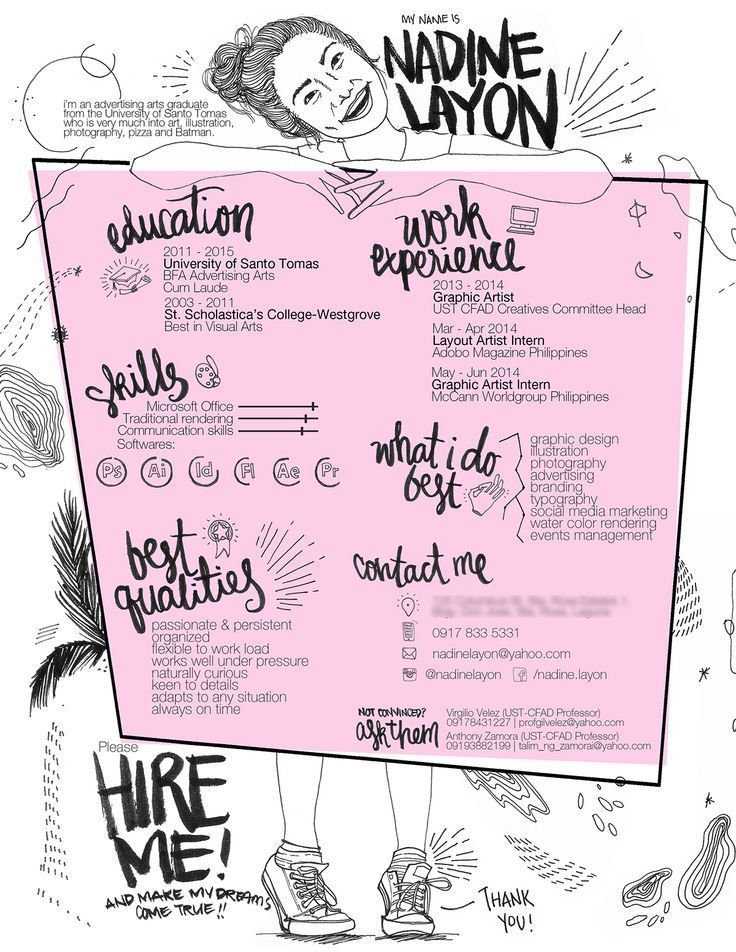 MY NAME IS
NADINE
LAYON
i'm an advertising arts graduate
from the University of Santo Tomas
who is very much into art, illustration,
photography, pizza and Batman.
education
2011 - 2015
University of Santo Tomas
BFA Advertising Arts
Cum Laude
2003 - 2011
St. Scholastica's College-Westgrove
Best in Visual Arts
work
experience
2013 - 2014
Graphic Artist
UST CFAD Creatives Committee Head
Mar - Apr 2014
Layout Artist Intern
Adobo Magazine Philippines
May - Jun 2014
Graphic Artist Intern
McCann Worldgroup Philippines
skills
Microsoft Office
Traditional rendering
Communication skills
Softwares:
Ps Ai Id Fl Ae Pr
what i do
best
graphic design
illustration
photography
advertising
branding
typography
social media marketing
water color rendering
events management
best
qualities
passionate & persistent
organized
flexible to work load
works well under pressure
naturally curious
keen to details
adapts to any situation
always on time
contact me
0917 833 5331
nadinelayon@yahoo.com
@nadinelayon f /nadine.layon
NOT CONVINCED?
ask them
Virgilio Velez (UST-CFAD Professor)
09178431227 | profgilvelez@yahoo.com
Anthony Zamora (UST-CFAD Professor)
09193882199 | talim_ng_zamorai@yahoo.com
Please
HIRE
ME!
AND MAKE MY DREAMS
COME TRUE!!
THANK
YOU!